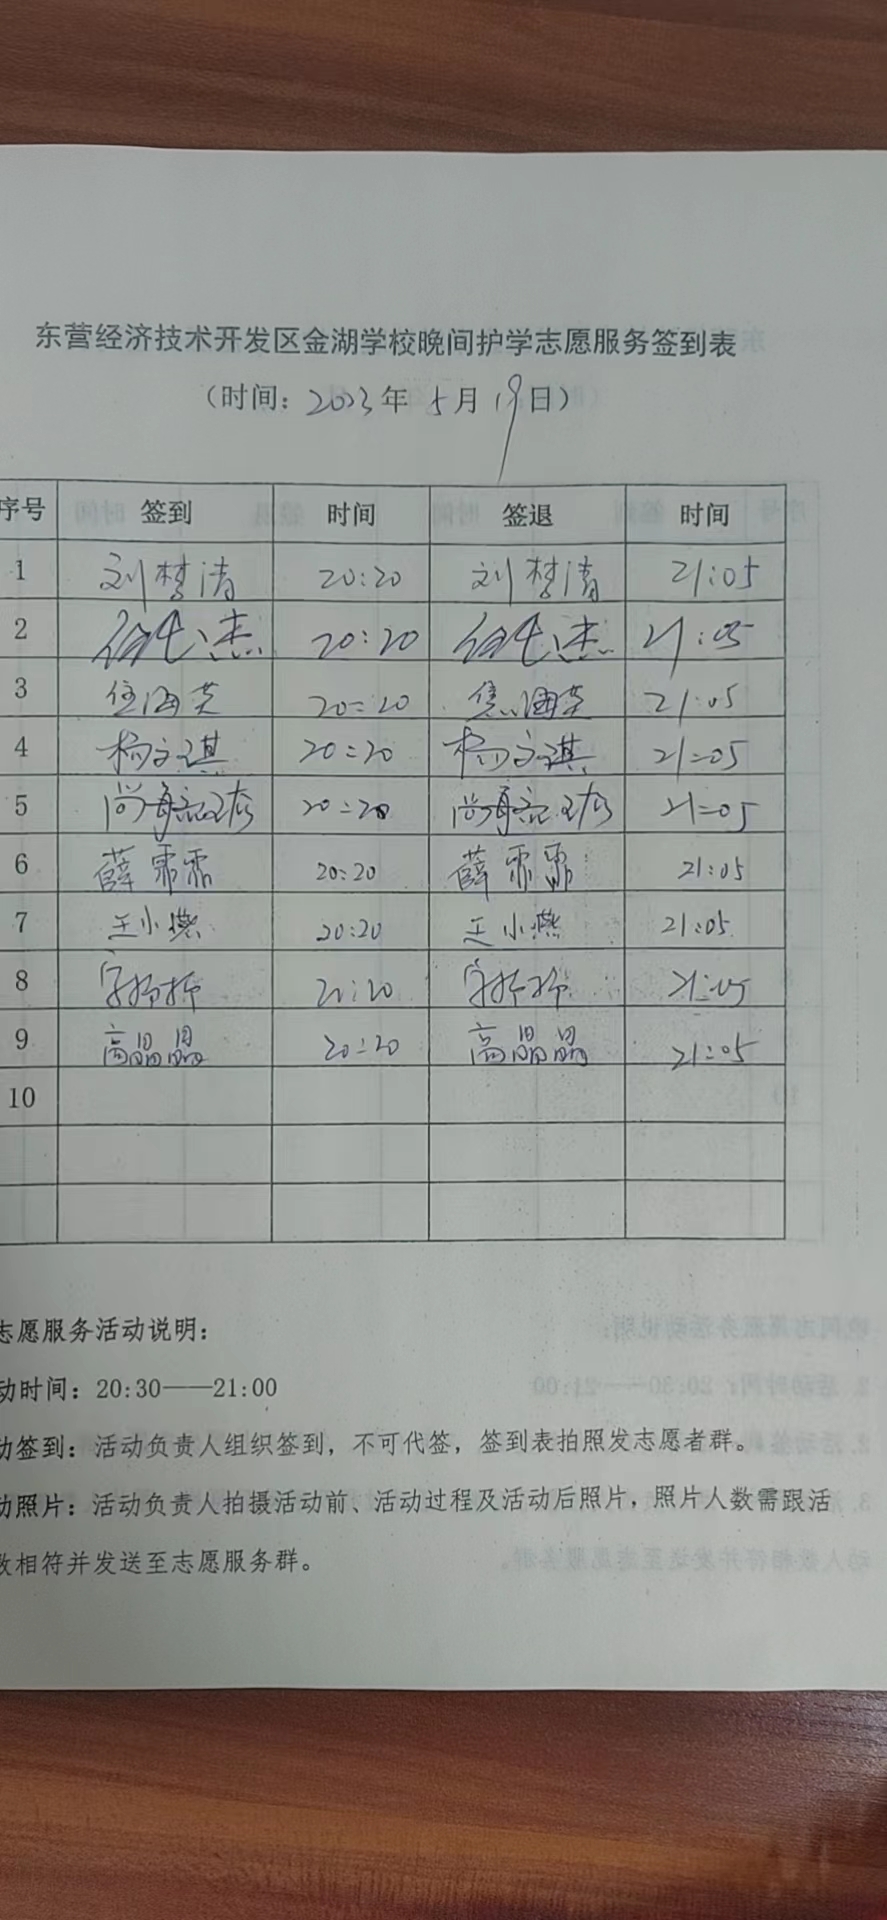 东营经济技术开发区金湖学校晚间护学志愿服务签到表
（时间：2023年5月19日）
序号 签到 时间 签退 时间
1 刘梦清 20:20 刘梦清 21:05
2 20:20 21:05
3 焦海英 20:20 焦海英 21:05
4 杨文琪 20:20 杨文琪 21:05
5 尚 20:20 尚 21:05
6 薛霏霏 20:20 薛霏霏 21:05
7 王小燕 20:20 王小燕 21:05
8 20:20 21:05
9 高晶晶 20:20 高晶晶 21:05
10
志愿服务活动说明：
动时间：20:30——21:00
动签到：活动负责人组织签到，不可代签，签到表拍照发志愿者群。
动照片：活动负责人拍摄活动前、活动过程及活动后照片，照片人数需跟活
数相符并发送至志愿服务群。